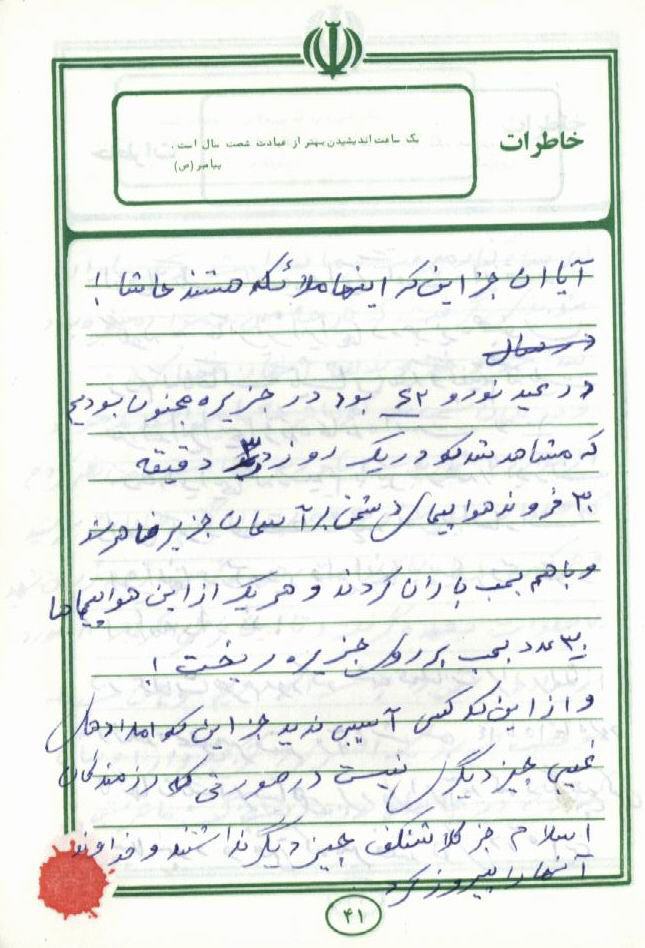 خاطرات
یک ساعت اندیشیدن بهتر از عبادت شصت سال است.
پیامبر (ص)
آیا ان جز این که اینها ملائکه هستند حاشا!
در سال
در عید نورو ۶۲ بود در جزیره مجنون بودیم
که مشاهد شد که در یک روز ۳ دقیقه
۳۰ فروند هواپیمای دشمن بر آسمان جزیر ظاهر شد
و با هم بمب باران کردند و هر یک از این هواپیماها
۳۰ عدد بمب بر روی جزیره ریخت!
و از این که کسی آسیبی ندید جز این که امدادهای
غیبی چیز دیگری نیست در صورتی که رزمندگان
اسلام جز کلاشنکف چیز دیگر نداشتند و خداوند
آنها را پیروز کرد
۴۱